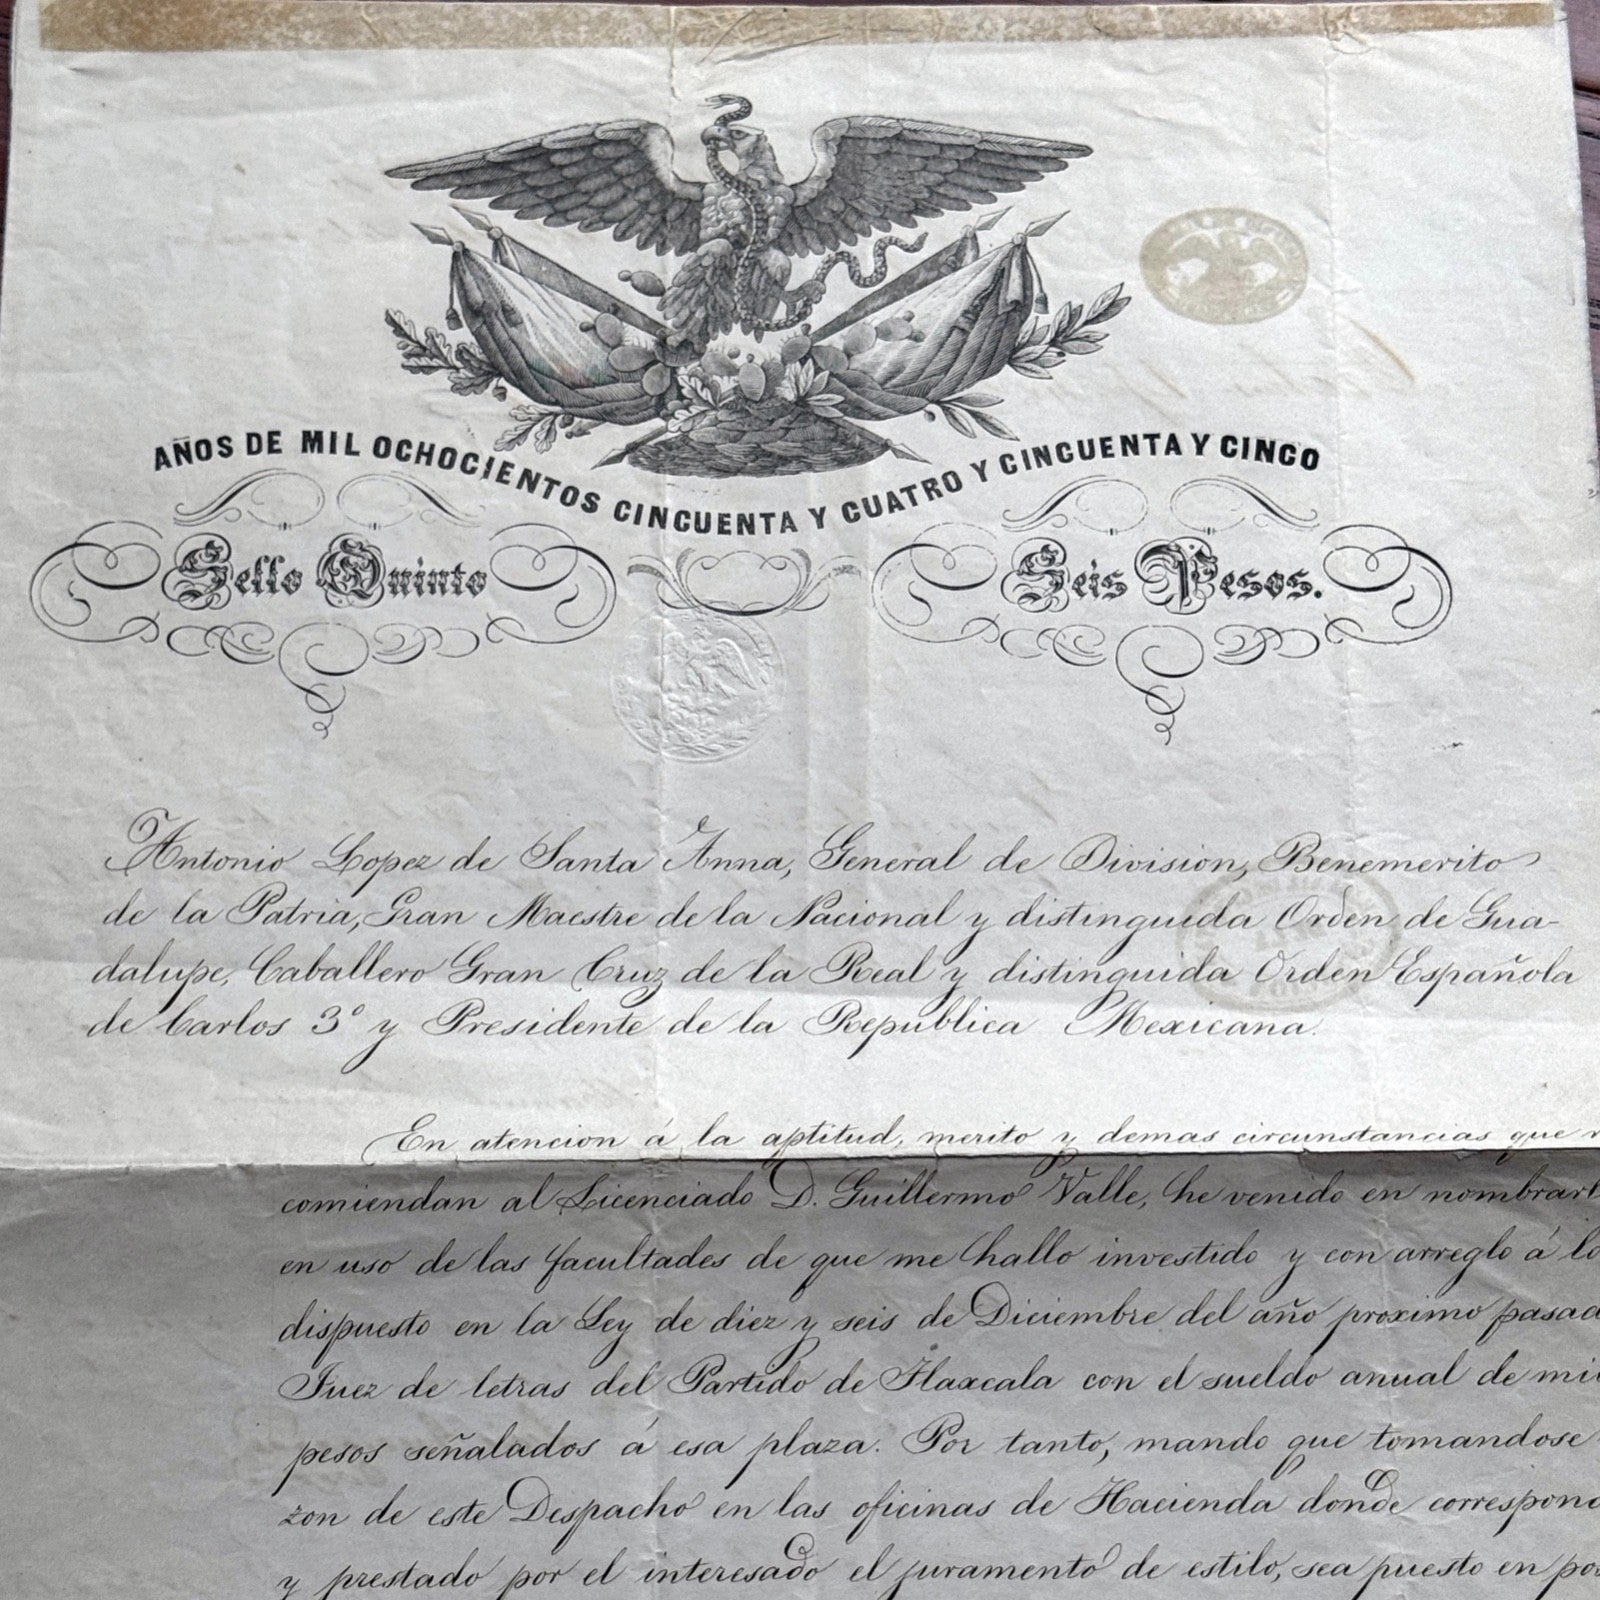 AÑOS DE MIL OCHOCIENTOS CINCUENTA Y CUATRO Y CINCUENTA Y CINCO
Sello Quinto
Seis Pesos.
Antonio Lopez de Santa Anna, General de Division, Benemerito
de la Patria, Gran Maestre de la Nacional y distinguida Orden de Gua-
dalupe, Caballero Gran Cruz de la Real y distinguida Orden Española
de Carlos 3º y Presidente de la Republica Mexicana.
En atencion á la aptitud, merito y demas circunstancias que
comiendan al Licenciado D. Guillermo Valle, he venido en nombrarl
en uso de las facultades de que me hallo investido y con arreglo á lo
dispuesto en la Ley de diez y seis de Diciembre del año proximo pasad
Juez de letras del Partido de Tlaxcala con el sueldo anual de mi
pesos señalados á esa plaza. Por tanto, mando que tomandose
zon de este Despacho en las oficinas de Hacienda donde correspond
y prestado por el interesado el juramento de estilo, sea puesto en pos